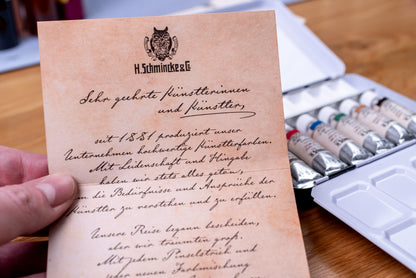 H. Schmincke & Co
Sehr geehrte Künstlerinnen
und Künstler,
seit 1881 produziert unser
Unternehmen hochwertige Künstlerfarben.
Mit Leidenschaft und Hingabe
haben wir stets alles getan,
um die Bedürfnisse und Ansprüche der
Künstler zu verstehen und zu erfüllen.
Unsere Reise begann bescheiden,
aber wir träumten groß.
Mit jedem Pinselstrich und
jeder neuen Farbmischung